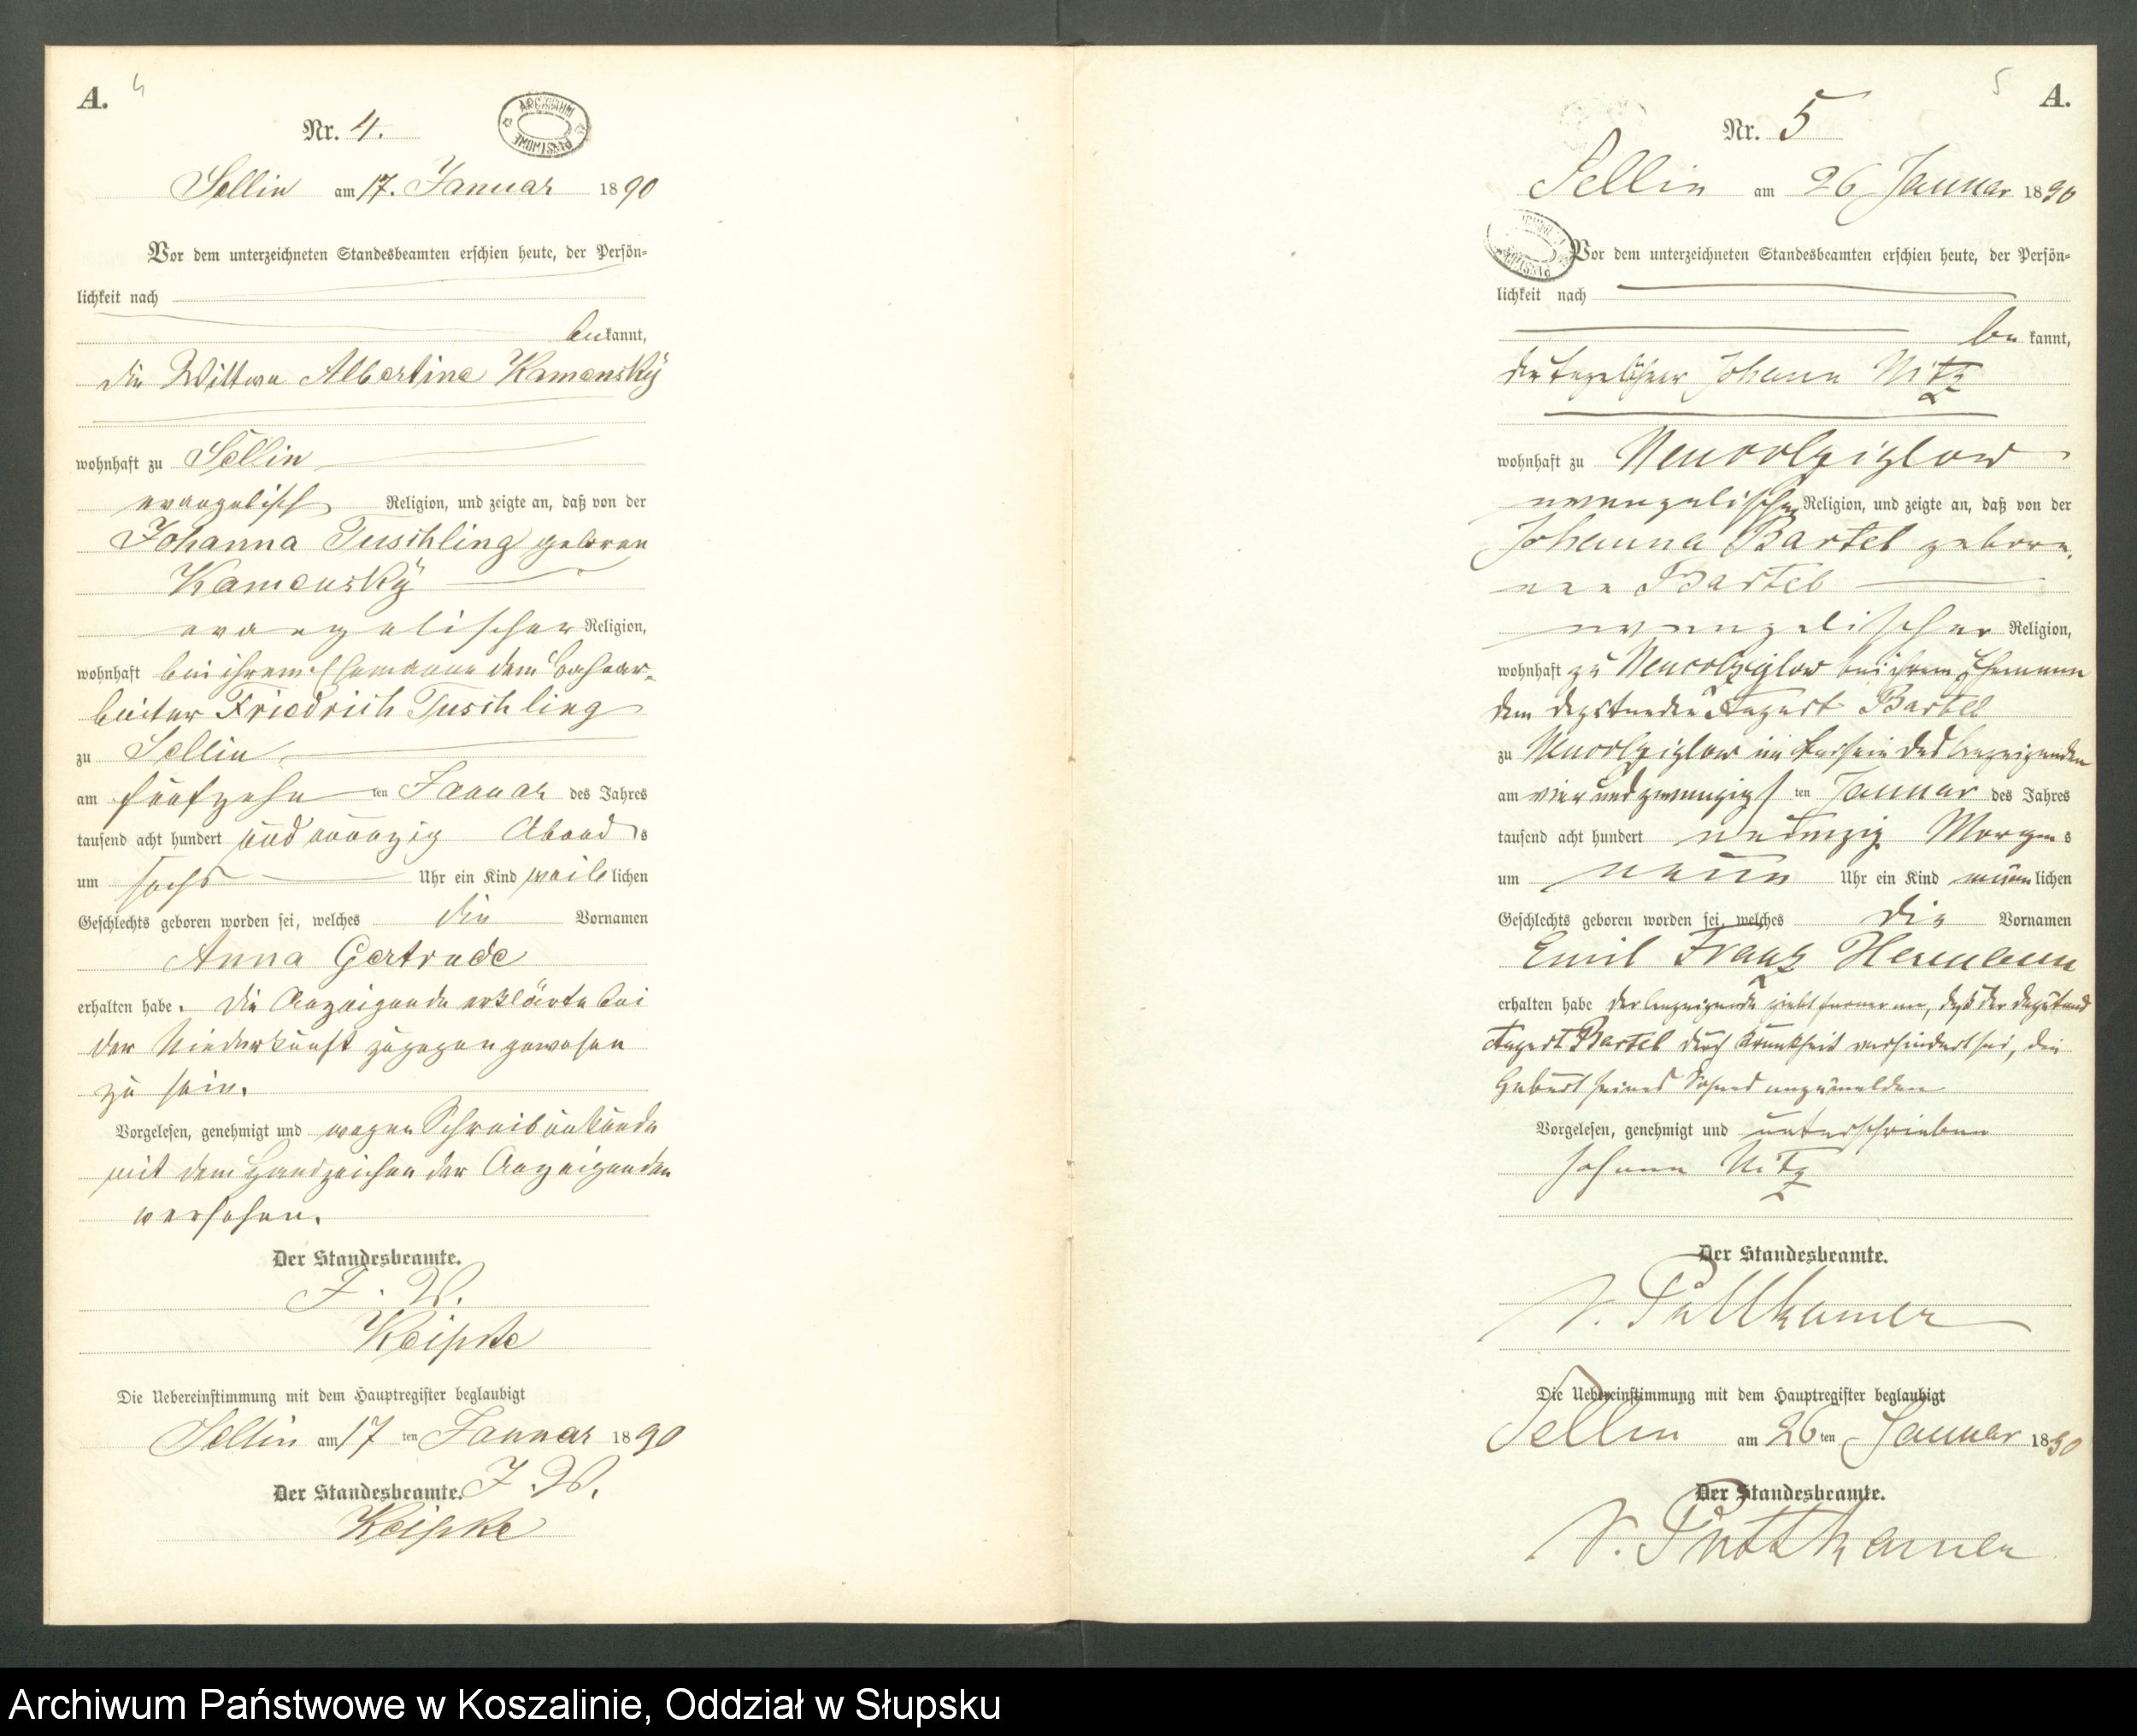 A. 4
Nr. 4.
ARCHIWUM PAŃSTWOWE
Sellin am 17. Januar 1890
Vor dem unterzeichneten Standesbeamten erschien heute, der Persön-
lichkeit nach
bekannt,
die Wittwe Albertine Kamensky
wohnhaft zu Sellin
evangelisch Religion, und zeigte an, daß von der
Johanna Tuschling geboren
Kamensky
evangelischer Religion,
wohnhaft bei ihrem Ehemanne dem
Friedrich Tuschling
zu Sellin
am fünfzehn ten Januar des Jahres
tausend acht hundert und neunzig Abends
um sechs Uhr ein Kind weiblichen
Geschlechts geboren worden sei, welches die Vornamen
Anna Gertrude
erhalten habe. Die Anzeigende erklärte bei
der Niederkunft zugegen gewesen
zu sein.
Vorgelesen, genehmigt und wegen Schreibunkunde
mit dem Handzeichen der Anzeigenden
versehen.
Der Standesbeamte.
J. V.
Keipke
Die Uebereinstimmung mit dem Hauptregister beglaubigt
Sellin am 17 ten Januar 1890
Der Standesbeamte. J. V.
Keipke
5 A.
Nr. 5
Sellin am 26 Januar 1890
Vor dem unterzeichneten Standesbeamten erschien heute, der Persön-
lichkeit nach
bekannt,
der Tagelöhner Johann Nitz
wohnhaft zu Neucolziglow
evangelischer Religion, und zeigte an, daß von der
Johanna Bartel gebore-
nen Bartel
evangelischer Religion,
wohnhaft zu Neucolziglow bei ihrem Ehemann
dem Deputanden August Bartel
zu Neucolziglow im Beisein des Anzeigenden
am vier und zwanzigst ten Januar des Jahres
tausend acht hundert neunzig Morgens
um neun Uhr ein Kind männlichen
Geschlechts geboren worden sei, welches die Vornamen
Emil Franz Hermann
erhalten habe der Anzeigende giebt ferner an, daß der Deputand
August Bartel durch Krankheit verhindert sei, die
Geburt seines Sohnes anzumelden
Vorgelesen, genehmigt und unterschrieben
Johann Nitz
Der Standesbeamte.
v. Puttkamer
Die Uebereinstimmung mit dem Hauptregister beglaubigt
Sellin am 26 ten Januar 1890
Der Standesbeamte.
v. Puttkamer
Archiwum Państwowe w Koszalinie, Oddział w Słupsku